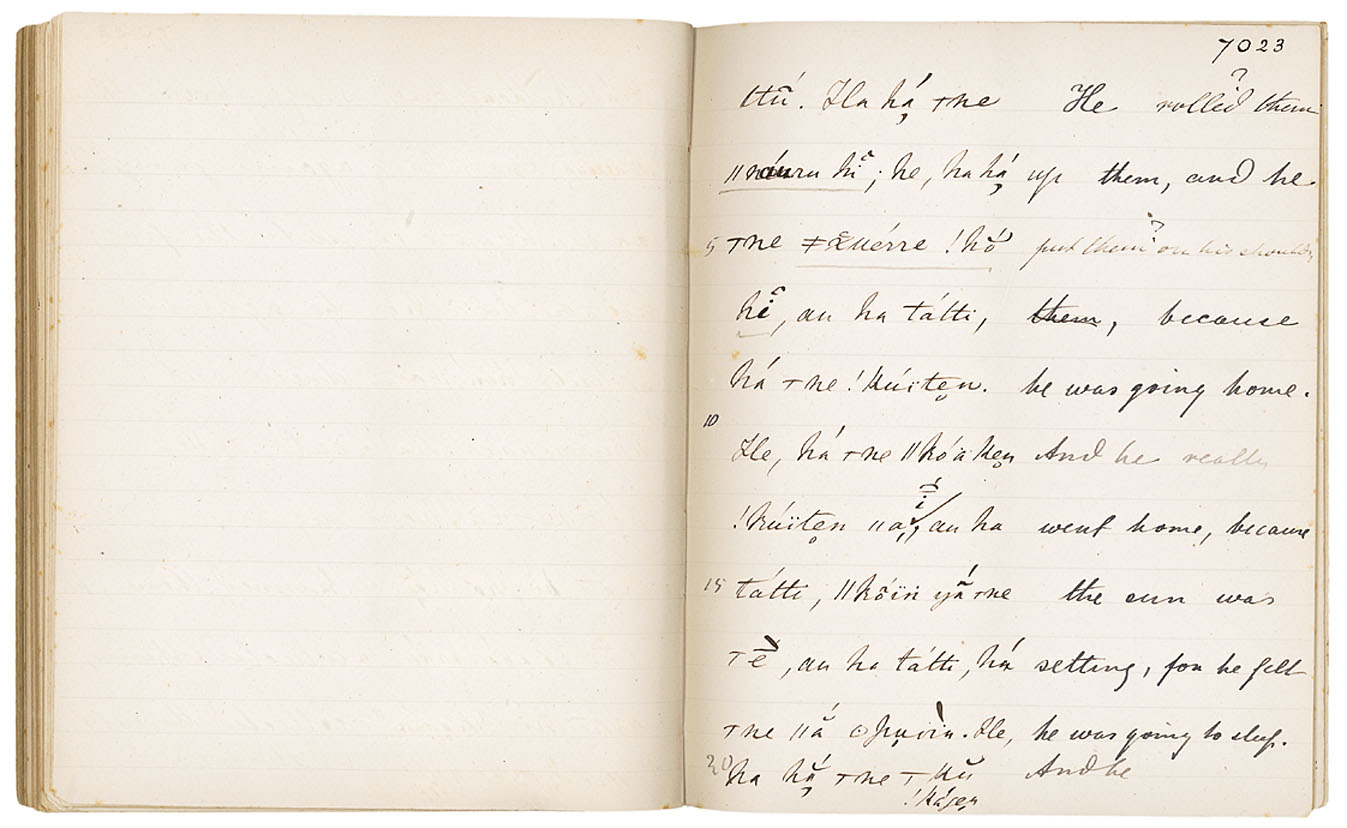 7023
ttũ. Ha há̤ ⊤ne He rolled? them
ǁnáuru hĩ; he, ha há̤ up them, and he
5 ⊤ne !hó̃ put them? on his shoulder
hĩ, au ha tátti, them, because
há ⊤ne !kúïten̥. he was going home.
10
He, há ⊤ne ǁkóä ken̥ And he really
!kúïten̥ ǁa, au ha went home, because
15 tátti, ǁkõïṅ yã́ ⊤ne the sun was
⊤ẽ, au ha tátti, há setting, for he felt
⊤ne ǁá ʘpuoin. He, he was going to sleep.
20 ha há̤ ⊤ne ⊤kũ And he
!kágen̥